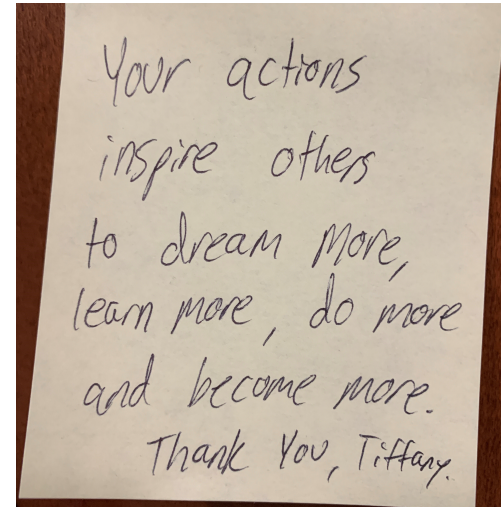 Your actions
inspire others
to dream more,
learn more, do more
and become more.
Thank You, Tiffany.